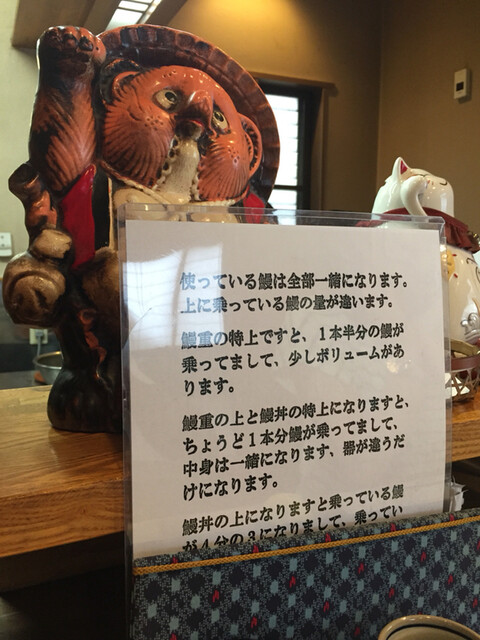 使っている鰻は全部一緒になります。
上に乗っている鰻の量が違います。
鰻重の特上ですと、１本半分の鰻が
乗ってまして、少しボリュームがあ
ります。
鰻重の上と鰻丼の特上になりますと、
ちょうど１本分鰻が乗ってまして、
中身は一緒になります、器が違うだ
けになります。
鰻丼の上になりますと乗っている鰻
が４分の３になりまして、乗ってい